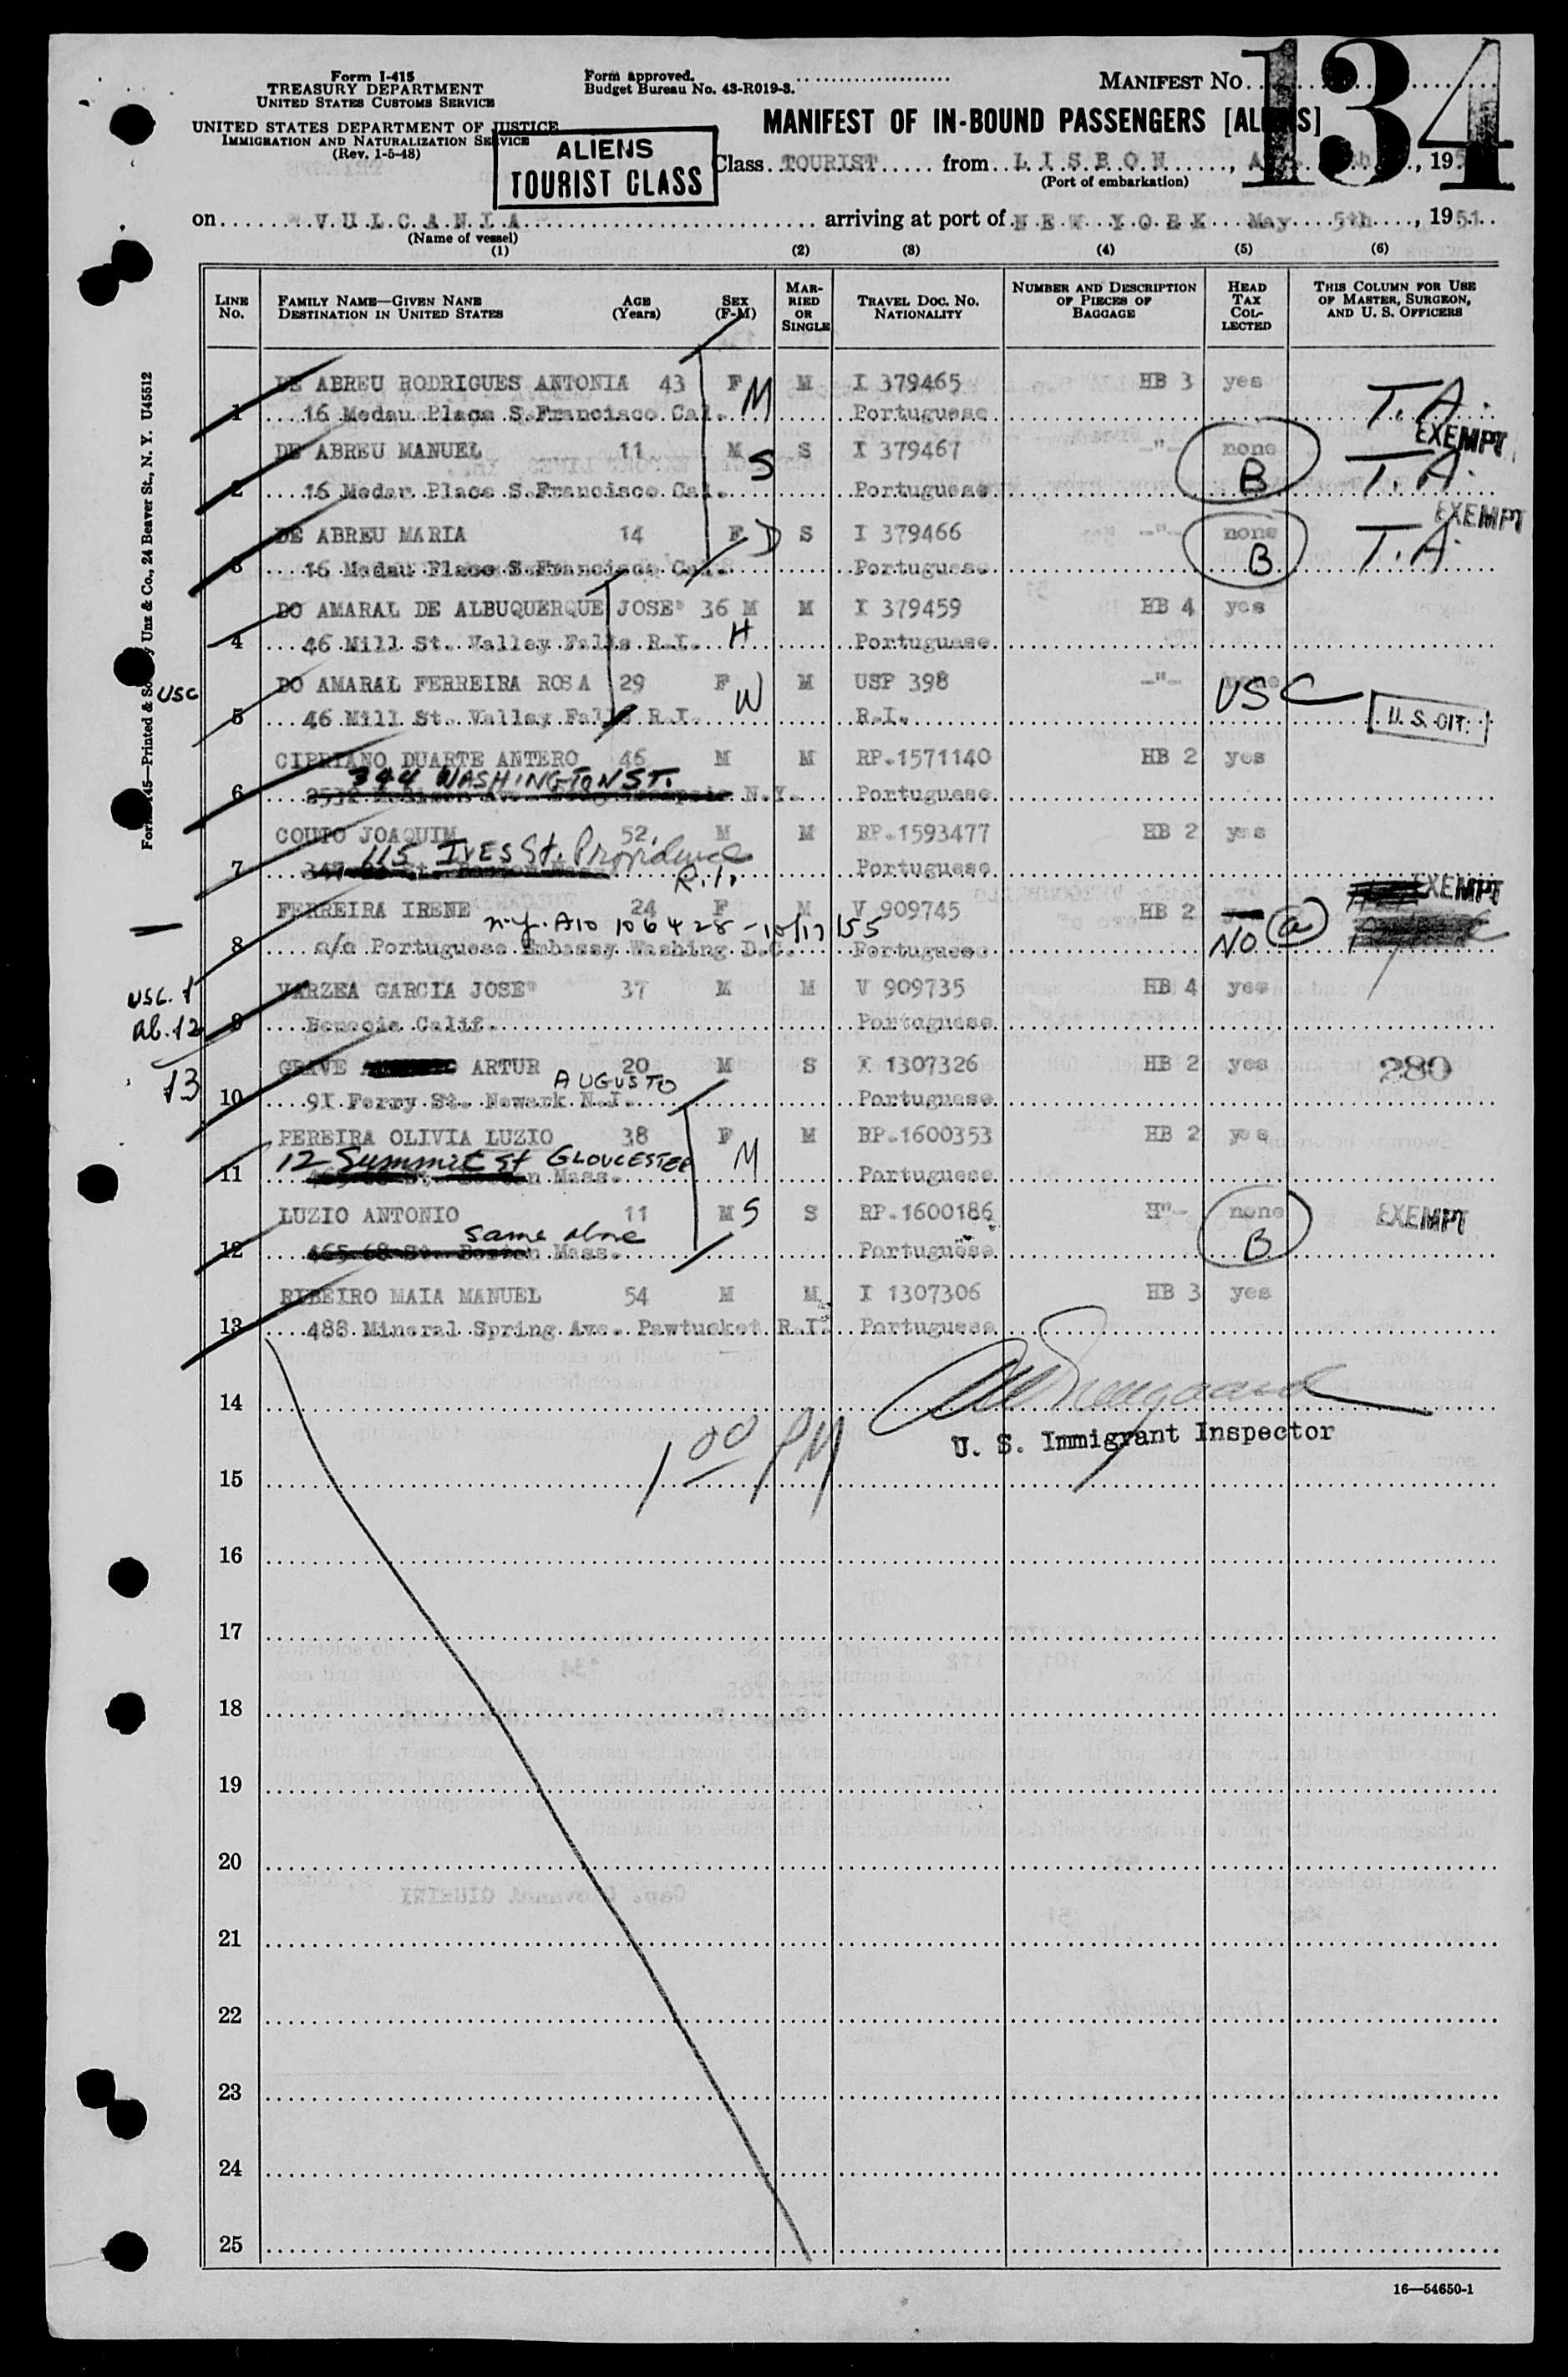 Form I-415
TREASURY DEPARTMENT
UNITED STATES CUSTOMS SERVICE
UNITED STATES DEPARTMENT OF JUSTICE
IMMIGRATION AND NATURALIZATION SERVICE
(Rev. 1-5-48)
Form approved.
Budget Bureau No. 43-R019-3.
MANIFEST NO. 134
MANIFEST OF IN-BOUND PASSENGERS [ALIENS]
ALIENS
TOURIST CLASS
Class TOURIST from LISBON, 19
(Port of embarkation)
on VULCANIA arriving at port of NEW YORK May 5th, 1951
(Name of vessel)
(1) (2) (3) (4) (5) (6)
LINE NO. FAMILY NAME—GIVEN NAME DESTINATION IN UNITED STATES AGE (Years) SEX (F-M) MARRIED OR SINGLE TRAVEL DOC. NO. NATIONALITY NUMBER AND DESCRIPTION OF PIECES OF BAGGAGE HEAD TAX COLLECTED THIS COLUMN FOR USE OF MASTER, SURGEON, AND U. S. OFFICERS
DE ABREU RODRIGUES ANTONIA 43 F M M I 379465 HB 3 yes T.A.
1 16 Medau Place S.Francisco Cal. Portuguese
EXEMPT
DE ABREU MANUEL 11 M S S I 379467 -"- none B T.A.
2 16 Medau Place S.Francisco Cal. Portuguese
EXEMPT
DE ABREU MARIA 14 F D S I 379466 -"- none B T.A.
3 16 Medau Place S.Francisco Cal. Portuguese
DO AMARAL DE ALBUQUERQUE JOSE' 36 M M I 379459 HB 4 yes
4 46 Mill St. Valley Falls R.I. H Portuguese
USC
DO AMARAL FERREIRA ROSA 29 F W M USP 398 -"- none USC
5 46 Mill St. Valley Falls R.I. R.I. U. S. CIT.
CIPRIANO DUARTE ANTERO 46 M M RP.1571140 HB 2 yes
344 WASHINGTON ST.
6 N.Y. Portuguese
COUTO JOAQUIM 52 M M RP.1593477 HB 2 yes
115 IVES St. Providence R.I.
7 Portuguese
EXEMPT
FERREIRA IRENE 24 F M V 909745 HB 2 NO (a)
n.y. A10 106428 - 10/17/55
8 c/o Portuguese Embassy Washing D.C. Portuguese
VARZEA GARCIA JOSE' 37 M M V 909735 HB 4 yes
usc. 1
al. 12
13
9 Benecia Calif. Portuguese
GRAVE ARTUR 20 M S I 1307326 HB 2 yes 280
AUGUSTO
10 91 Ferry St. Newark N.J. Portuguese
PEREIRA OLIVIA LUZIO 38 F M M RP.1600353 HB 2 yes
12 Summit St GLOUCESTER
11 Mass. Portuguese
LUZIO ANTONIO 11 M S S RP.1600186 H"- none B EXEMPT
same above
12 465 68 St. Boston Mass. Portuguese
RIBEIRO MAIA MANUEL 54 M M I 1307306 HB 3 yes
13 488 Mineral Spring Ave. Pawtucket R.I. Portuguese
14
U. S. Immigrant Inspector
1 00 PM
15
16
17
18
19
20
21
22
23
24
25
16—54650-1
Unz & Co., 24 Beaver St., N. Y. U45512